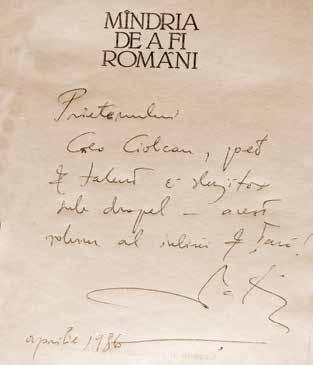 MÎNDRIA
DE A FI
ROMÂNI
Prietenului
Geo Ciolcan, poet
de talent și slujitor
sub drapel – acest
volum al iubirii de Țară!
aprilie 1986